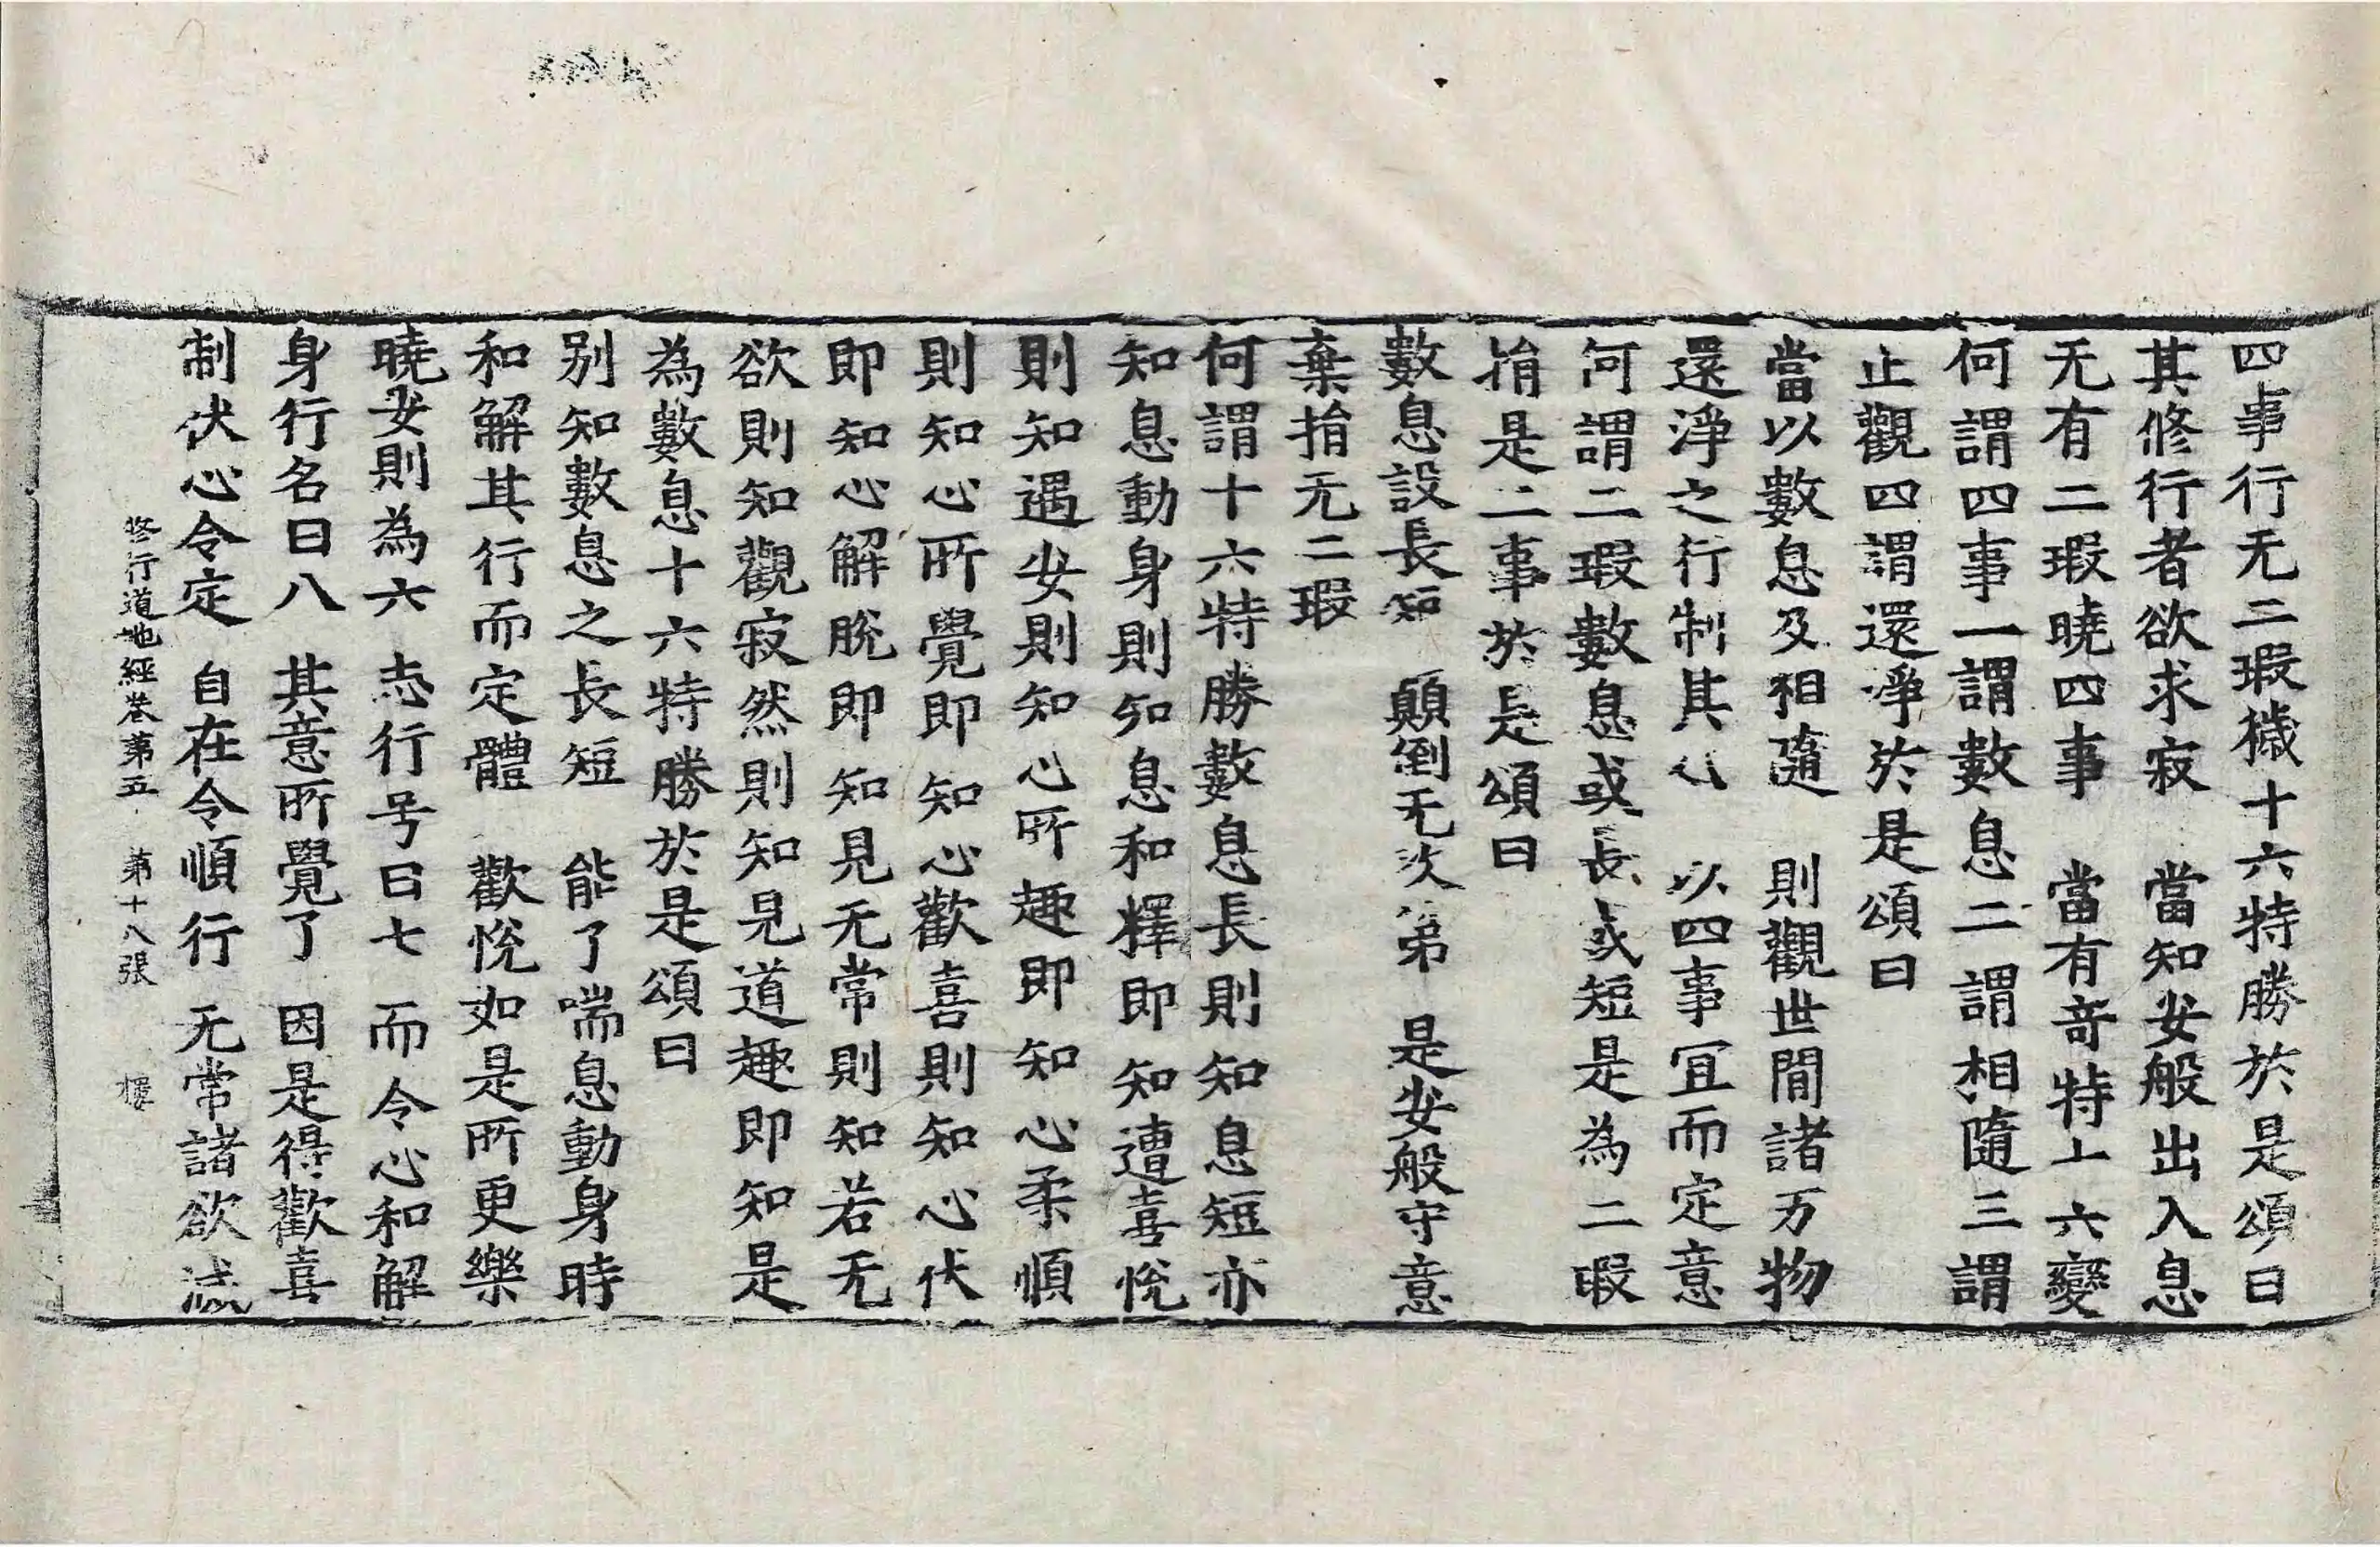 四事行无二瑕穢十六特勝於是頌曰
其修行者欲求寂　當知安般出入息
无有二瑕曉四事　當有奇特上六變
何謂四事一謂數息二謂相隨三謂
止觀四謂還淨於是頌曰
當以數息及相隨　則觀世間諸万物
還淨之行制其心　以四事冝而定意
何謂二瑕數息或長或短是為二瑕
捐是二事於是頌曰
數息設長短　顛倒无次弟　是安般守意
棄捐无二瑕
何謂十六特勝數息長則知息短亦
知息動身則知息和釋即知遭喜悅
則知遇安則知心所趣即知心柔順
則知心所覺即知心歡喜則知心伏
即知心解脫即知見无常則知若无
欲則知觀寂然則知見道趣即知是
為數息十六特勝於是頌曰
別知數息之長短　能了喘息動身時
和解其行而定體　歡悅如是所更樂
曉安則為六　志行号曰七　而令心和解
身行名曰八　其意所覺了　因是得歡喜
制伏心令定　自在令順行　无常諸欲滅
修行道地經卷第五　第十八張　樓